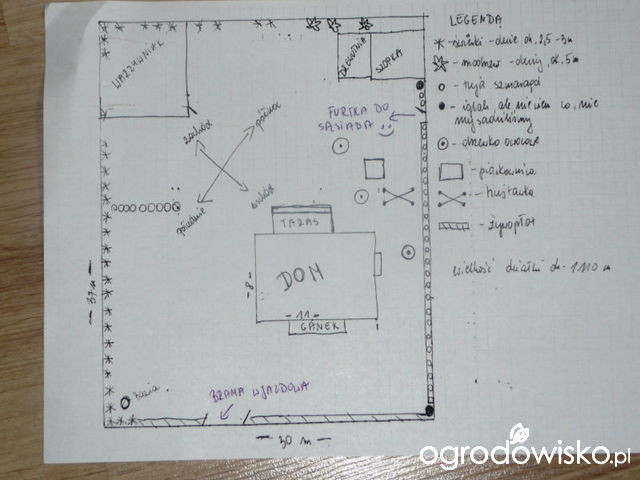 LEGENDA
- duże ok. 2,5-3m
- modrzew - okazy, ok. 5m
- tuja szmaragd
- iglak, ale nie wiem co, nie my sadziliśmy
- drzewko owocowe
- piaskownica
- huśtawka
- żywopłot
wielkość działki ok. 1110 m
WARZYWNIAK
DREWNIA
SZOPKA
FURTKA DO
SĄSIADA
zachód
północ
południe
wschód
TARAS
DOM
- 8 -
- 11 -
GANEK
- 37 m -
BRAMA WJAZDOWA
- 30 m -
ogrodowisko.pl